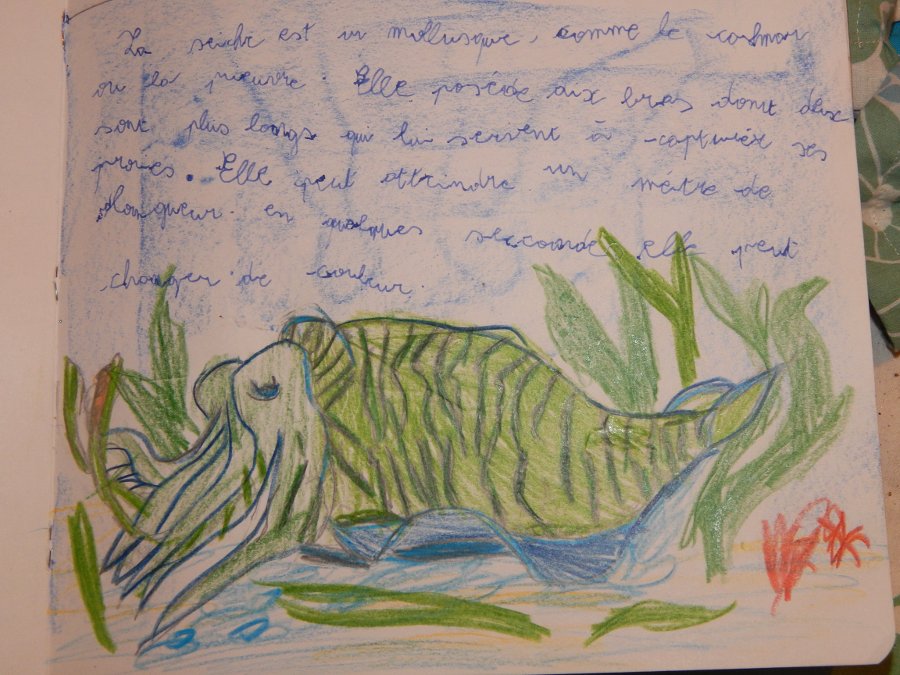 La seiche est un mollusque, comme le calmar
ou la pieuvre. Elle poséde dix bras dont deux
sont plus longs qui lui servent à capturér ses
proies. Elle peut attindre un mètre de
longueur. en quelques seccondes elle peut
changer de couleur.